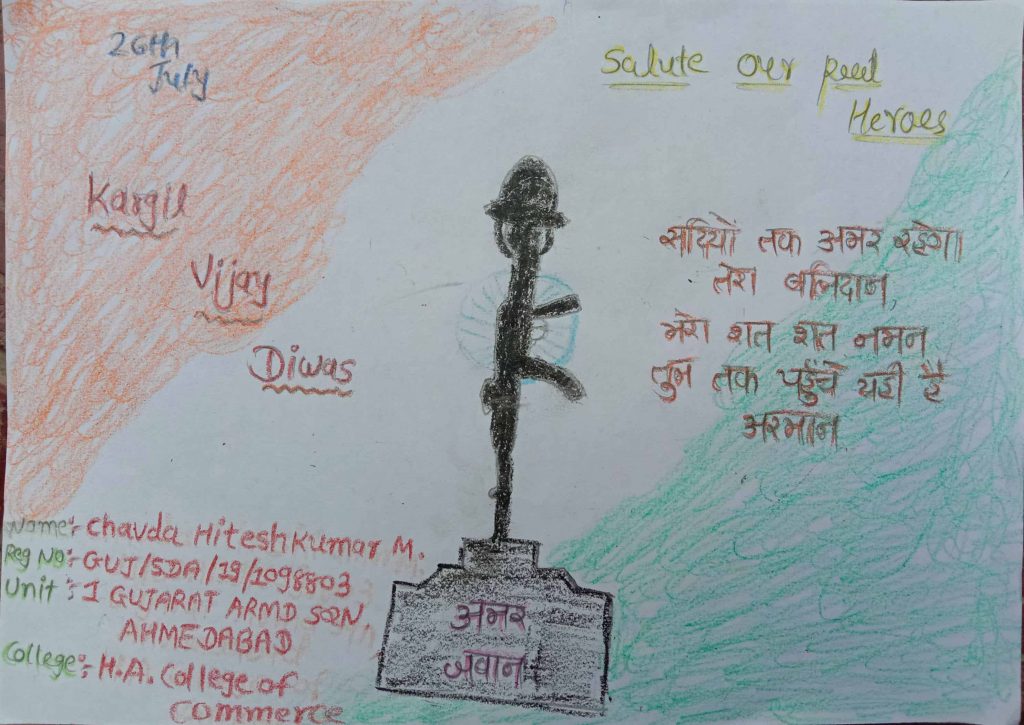 26th
July
Salute our real
Heroes
Kargil
Vijay
Diwas
सदियों तक अमर रहेगा
तेरा बलिदान,
मेरा शत शत नमन
तुम तक पहुँचे यही है
अरमान
Name:- Chavda Hiteshkumar M.
Reg No:- GUJ/SDA/19/1098803
Unit :- 1 GUJARAT ARMD SQN,
AHMEDABAD
College:- H.A. College of
Commerce
अमर
जवान